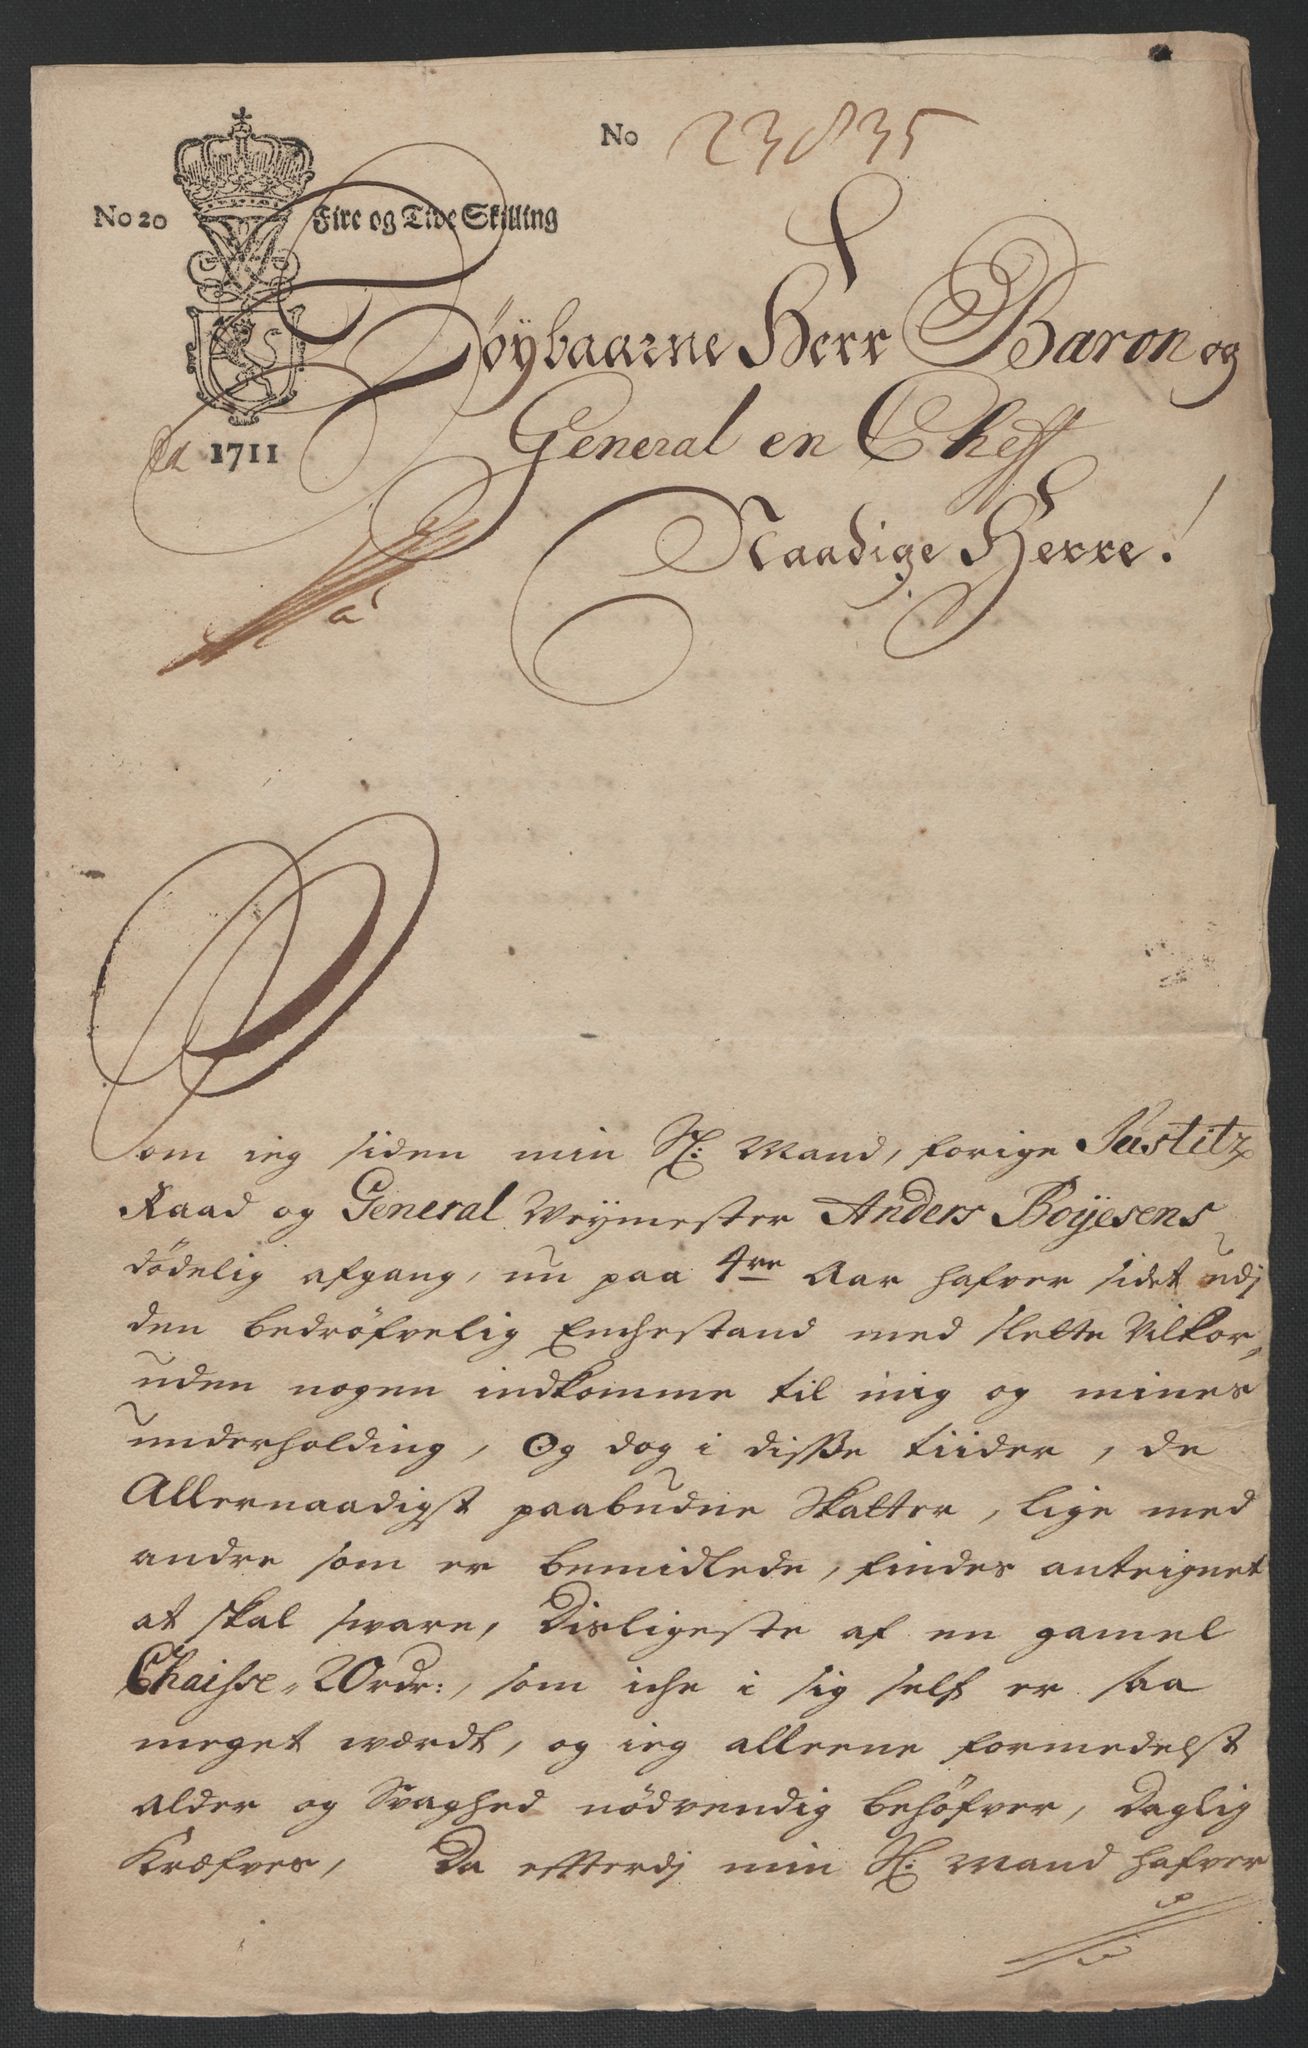 No 23835
No 20 Fire og Tive Skilling
Höybaarne Herr Baron og
1711 General en Cheff
Naadige Herre!
a
Som ieg siden min Sl: Mand, forige Justitz
Raad og General Veymester Anders Boyesens
dödelig afgang, nu paa 4re Aar hafver sidet udj
den bedröfvelig Enchestand med slette Vilkor,
uden nogen indkomme til mig og mines
underholding, Og dog i disse tiider, de
Allernaadigst paabudne Skatter, lige med
andre som er bemidlede, findes anteignet
at skal svare, Disligeste af en gamel
Chaisse, 2 Ordr:, som iche i sig self er saa
meget værdt, og ieg alleene formedelst
alder og Svaghed nödvendig behöfver, Daglig
Kræfves, Da efterdj min Sl: Mand hafver